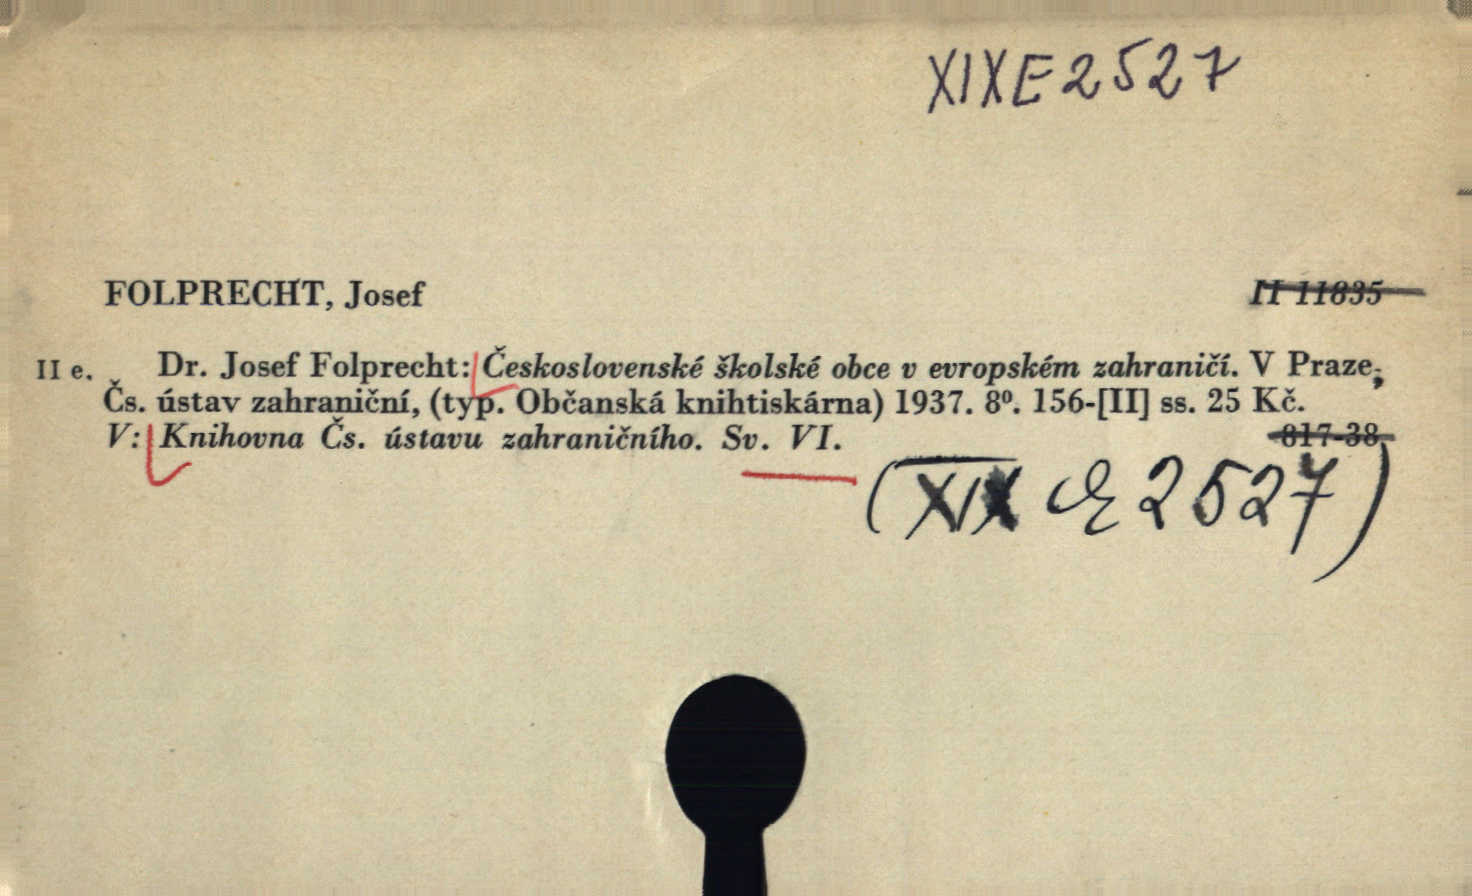 XIX E 2527
FOLPRECHT, Josef II 11835
II e. Dr. Josef Folprecht: Československé školské obce v evropském zahraničí. V Praze,
Čs. ústav zahraniční, (typ. Občanská knihtiskárna) 1937. 8º. 156-[II] ss. 25 Kč.
V: Knihovna Čs. ústavu zahraničního. Sv. VI. 817-38
(XIX E 2527)